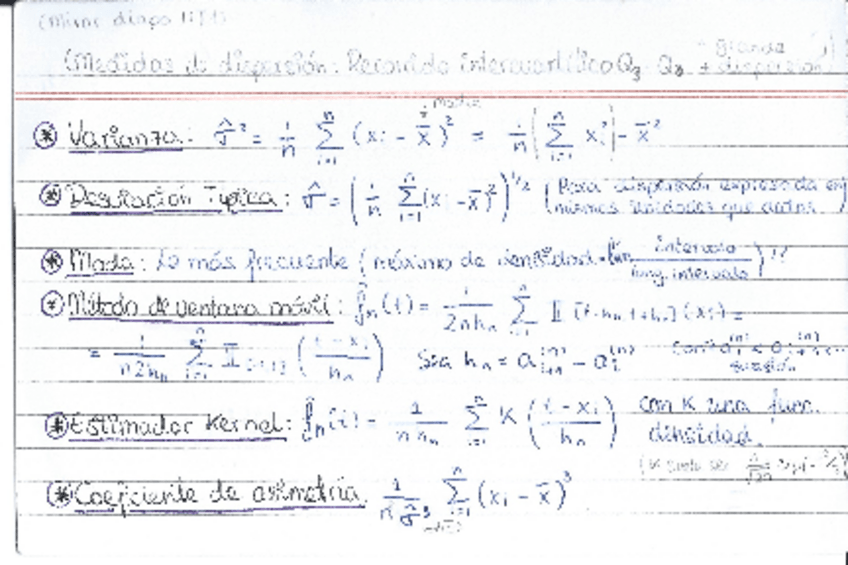 (Mirar diapo 1111)
(Medidas de dispersión: Recorrido Intercuartílico Q₃ Q₈ + grande + dispersión)
* Varianza: σ̂² = 1/n ∑ᵢ₌₁ⁿ (xi - x̄)² = 1/n (∑ᵢ₌₁ⁿ xᵢ²) - x̄²
* Desviación Típica: σ̂ = (1/n ∑ᵢ₌₁ⁿ (xi - x̄)²)^1/2 (Para dispersión expresada en
mismas unidades que datos)
* Moda: Lo más frecuente (máximo de densidad = Intervalo / long. intervalo)!!
* Método de ventana móvil: f̂n(t) = 1/2nhn ∑ᵢ₌₁ⁿ 𝕀 [t-hn, t+hn] (xi) =
= 1/n2hn ∑ᵢ₌₁ⁿ 𝕀 [-1,1] (t - xi / hn) Sea hn =
* Estimador Kernel: f̂n(t) = 1/n hn ∑ᵢ₌₁ⁿ K (t - xi / hn) con K una func.
densidad.
(K suele ser
* Coeficiente de asimetría: 1/n σ̂³ ∑ᵢ₌₁ⁿ (xi - x̄)³